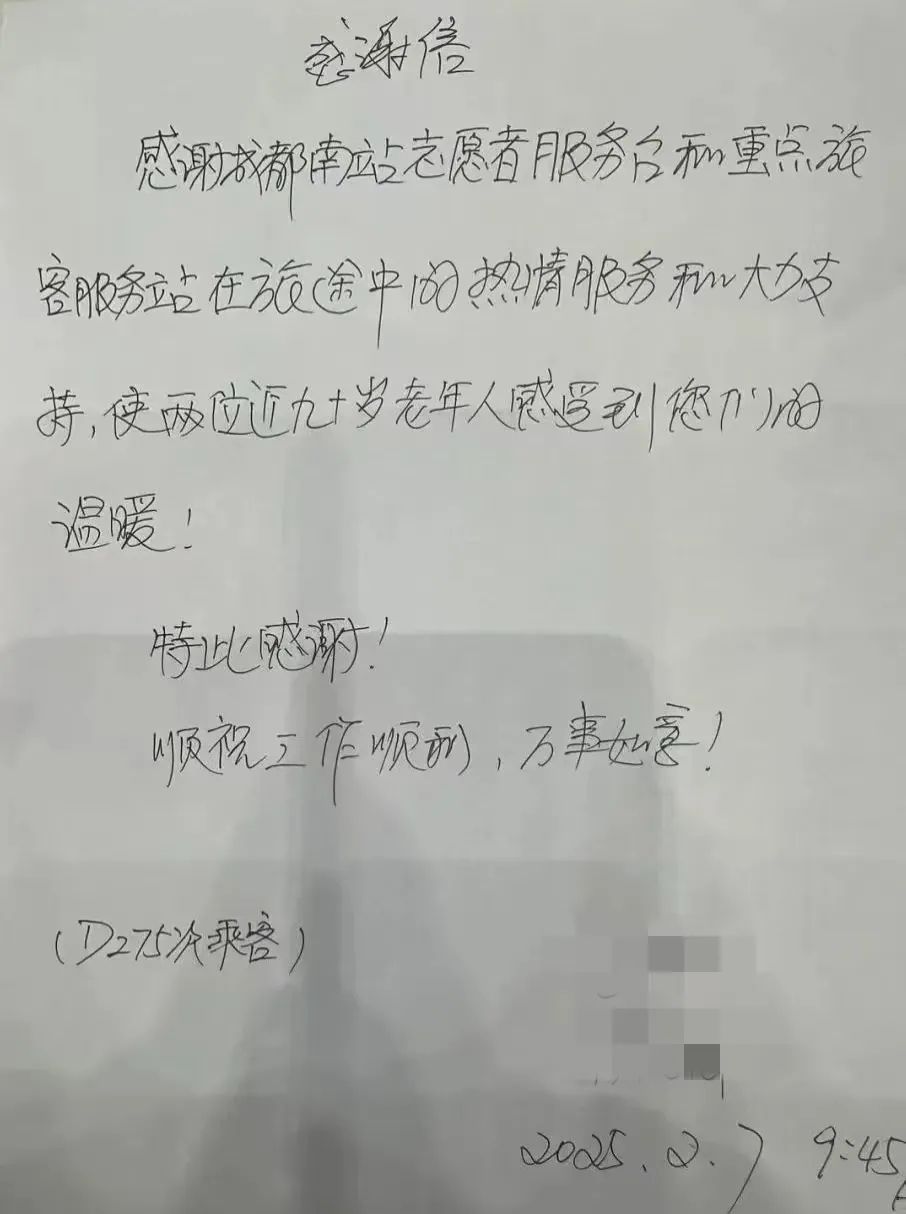 感谢信
感谢成都南站志愿者服务台和重点旅
客服务站在旅途中的热情服务和大力支
持,使两位近九十岁老年人感受到您们的
温暖!
特此感谢!
顺祝工作顺利,万事如意!
(D275次乘客)
2025.2.7 9:45